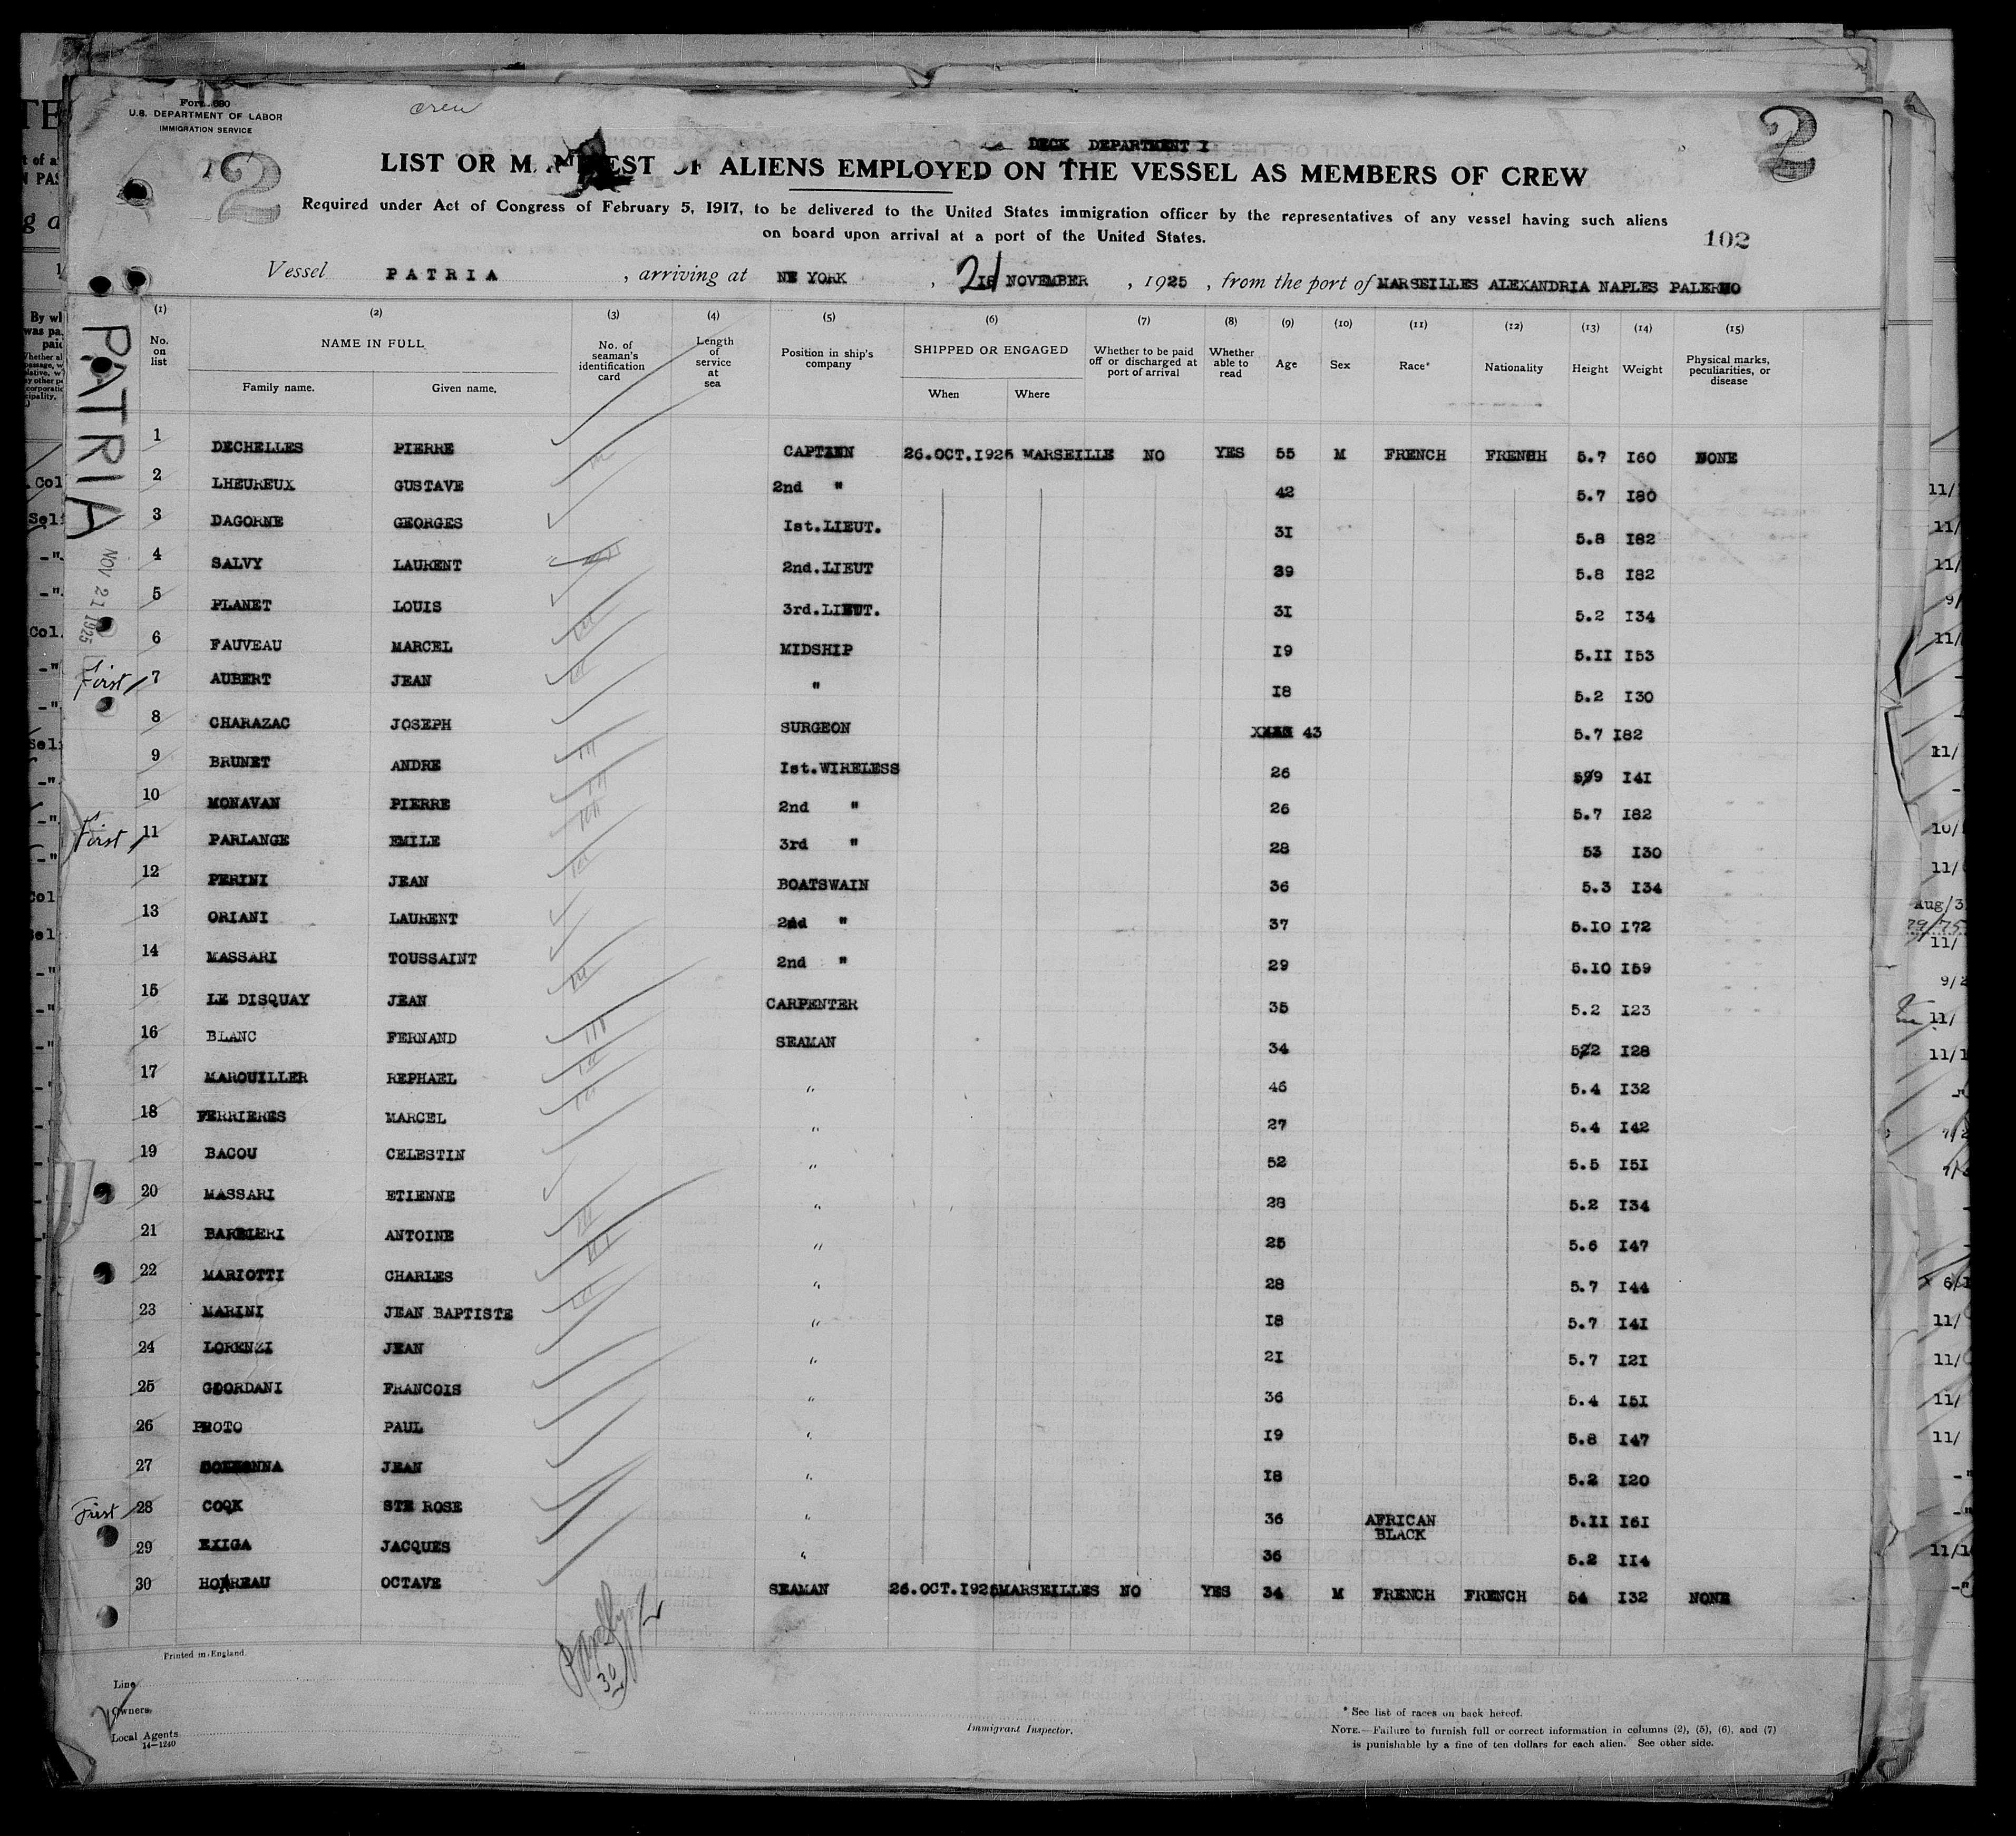 Form 680
U.S. DEPARTMENT OF LABOR
IMMIGRATION SERVICE
crew
2
2
DECK DEPARTMENT I
LIST OR M EST OF ALIENS EMPLOYED ON THE VESSEL AS MEMBERS OF CREW
Required under Act of Congress of February 5, 1917, to be delivered to the United States immigration officer by the representatives of any vessel having such aliens
on board upon arrival at a port of the United States.
102
Vessel PATRIA , arriving at NE YORK , 21 NOVEMBER , 1925 , from the port of MARSEILLES ALEXANDRIA NAPLES PALERMO
PATRIA
NOV 21 1925
(1) No. on list (2) NAME IN FULL Family name. Given name. (3) No. of seaman's identification card (4) Length of service at sea (5) Position in ship's company (6) SHIPPED OR ENGAGED When Where (7) Whether to be paid off or discharged at port of arrival (8) Whether able to read (9) Age (10) Sex (11) Race* (12) Nationality (13) Height (14) Weight (15) Physical marks, peculiarities, or disease
1 DECHELLES PIERRE CAPTAIN 26.OCT.1925 MARSEILLE NO YES 55 M FRENCH FRENCH 5.7 I60 NONE
2 LHEUREUX GUSTAVE 2nd " 42 5.7 I80
3 DAGORNE GEORGES Ist.LIEUT. 3I 5.8 I82
4 SALVY LAURENT 2nd.LIEUT 39 5.8 I82
5 PLANET LOUIS 3rd.LIEUT. 3I 5.2 I34
6 FAUVEAU MARCEL MIDSHIP I9 5.II I53
First 7 AUBERT JEAN " I8 5.2 I30
8 CHARAZAC JOSEPH SURGEON 43 5.7 I82
9 BRUNET ANDRE Ist.WIRELESS 26 5 9 I4I
10 MONAVAN PIERRE 2nd " 26 5.7 I82
First 11 PARLANGE EMILE 3rd " 28 53 I30
12 PERINI JEAN BOATSWAIN 36 5.3 I34
13 ORIANI LAURENT 2nd " 37 5.IO I72
14 MASSARI TOUSSAINT 2nd " 29 5.IO I59
15 LE DISQUAY JEAN CARPENTER 35 5.2 I23
16 BLANC FERNAND SEAMAN 34 5 2 I28
17 MAROUILLER REPHAEL " 46 5.4 I32
18 FERRIERES MARCEL " 27 5.4 I42
19 BACOU CELESTIN " 52 5.5 I5I
20 MASSARI ETIENNE " 28 5.2 I34
21 BARBIERI ANTOINE " 25 5.6 I47
22 MARIOTTI CHARLES " 28 5.7 I44
23 MARINI JEAN BAPTISTE " I8 5.7 I4I
24 LORENZI JEAN " 2I 5.7 I2I
25 GIORDANI FRANCOIS " 36 5.4 I5I
26 PROTO PAUL " I9 5.8 I47
27 JEAN " I8 5.2 I20
First 28 COQK STE ROSE " 36 AFRICAN BLACK 5.II I6I
29 EXIGA JACQUES " 36 5.2 II4
30 HOAREAU OCTAVE SEAMAN 26.OCT.1925 MARSEILLES NO YES 34 M FRENCH FRENCH 54 I32 NONE
30
Printed in England.
Line
Owners
Local Agents
14—1240
Immigrant Inspector.
* See list of races on back hereof.
NOTE.—Failure to furnish full or correct information in columns (2), (5), (6), and (7)
is punishable by a fine of ten dollars for each alien. See other side.